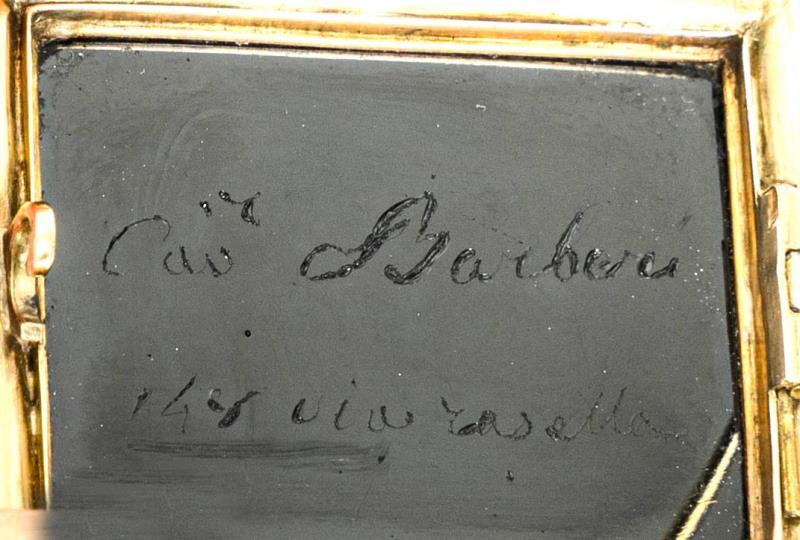 Cav.re Barberi
148 via rasella